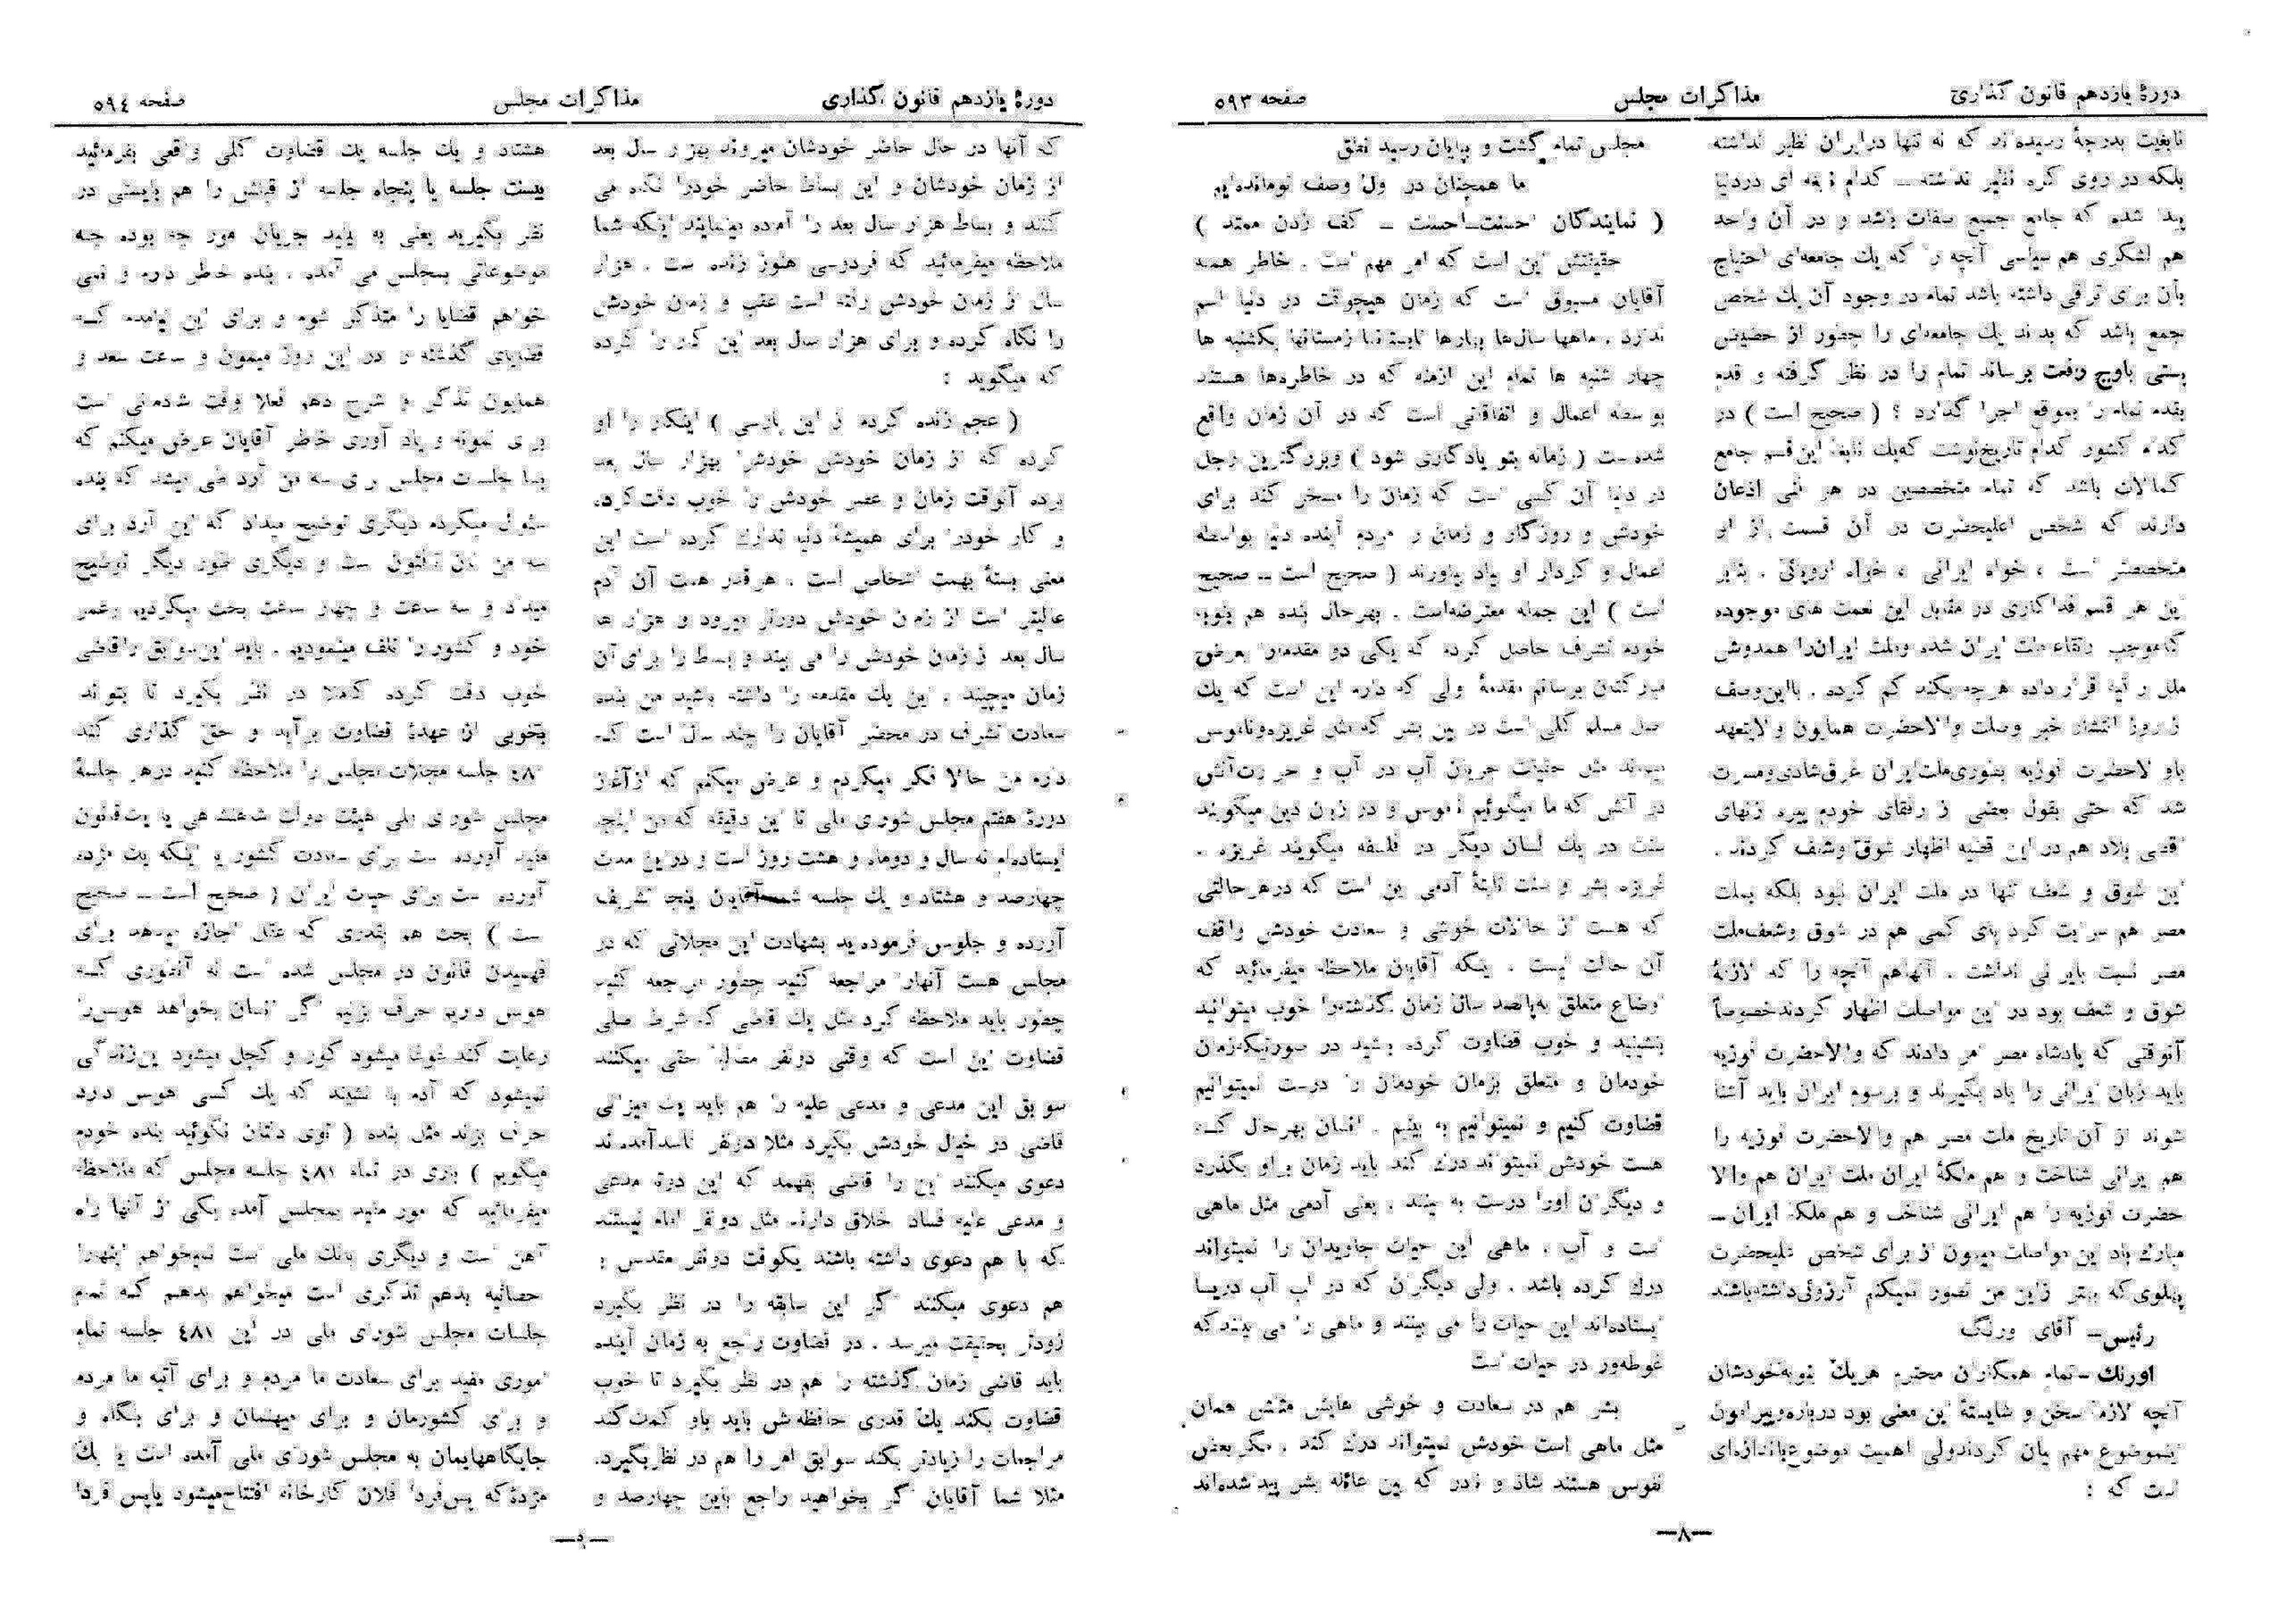 دورهٔ یازدهم قانون گذاری
مذاکرات مجلس
صفحه ۵۹۳
نابغیت بدرجهٔ رسیده‌اند که نه تنها در ایران نظیر نداشته
بلکه در روی کره نظیر نداشته ــ کدام نابغه ای در دنیا
پیدا شده که جامع جمیع صفات باشد و در آن واحد
هم لشگری هم سیاسی آنچه را که یك جامعه‌ای احتیاج
بآن برای ترقی داشته باشد تمام در وجود آن یك شخص
جمع باشد که بداند یك جامعه‌ای را چطور از حضیض
پستی باوج رفعت برساند تمام را در نظر گرفته و قدم
بقدم تمام را بموقع اجرا گذارد ؟ ( صحیح است ) در
کدام کشور کدام تاریخ نوشت که یك نابغهٔ این قسم جامع
کمالات باشد که تمام متخصصین در هر فنی اذعان
دارند که شخص اعلیحضرت در آن قسمت از او
متخصصتر است ، خواه ایرانی ، خواه اروپائی . بنابر
این هر قسم فداکاری در مقابل این نعمت های موجوده
که موجب ارتقاء ملت ایران شده و ملت ایران را همدوش
ملل راقیه قرار داده هر چه بکند کم کرده . با این وصف
از روز انتشار خبر وصلت والاحضرت همایون ولایتعهد
با والاحضرت فوزیه بفوری ملت ایران غرق شادی و مسرت
شد که حتی بقول بعضی از رفقای خودم پیره زنهای
اقصی بلاد هم در این قضیه اظهار شوق و شعف کردند .
این شوق و شعف تنها در ملت ایران نبود بلکه بملت
مصر هم سرایت کرد پای کمی هم در شوق و شعف ملت
مصر نسبت بایرانی نداشت . آنها هم آنچه را که لازمهٔ
شوق و شعف بود در این مواصلت اظهار کردند خصوصاً
آنوقتی که پادشاه مصر امر دادند که والاحضرت فوزیه
باید زبان ایرانی را یاد بگیرند و برسوم ایران باید آشنا
شوند از آن تاریخ ملت مصر هم والاحضرت فوزیه را
هم ایرانی شناخت و هم ملکهٔ ایران ملت ایران هم والا
حضرت فوزیه را هم ایرانی شناخت و هم ملکه ایران ــ
مبارك باد این مواصلت میمون از برای شخص اعلیحضرت
پهلوی که بهتر از این من تصور نمیکنم آرزوئی داشته باشند
رئیس ــ آقای اورنگ
اورنك ــ تمام همکاران محترم هر یك بنوبه خودشان
آنچه لازمهٔ سخن و شایستهٔ این معنی بود درباره و پیرامون
اینموضوع مهم بیان کردند ولی اهمیت موضوع باندازه‌ای
است که :
مجلس تمام گشت و بپایان رسید نطق
ما همچنان در اول وصف تو مانده‌ایم
( نمایندگان ــ احسنت ــ احسنت ــ کف زدن ممتد )
حقیقتش این است که امر مهم است . خاطر همه
آقایان مسبوق است که زمان هیچوقت در دنیا اسم
ندارد ، ماهها سال‌ها بهارها تابستانها زمستانها یکشنبه ها
چهار شنبه ها تمام این ازمنه که در خاطره‌ها هستند
بواسطه اعمال و اتفاقاتی است که در آن زمان واقع
شده است ( زمانه بتو یادگاری شود ) و بزرگترین رجل
در دنیا آن کسی است که زمان را مسخر کند برای
خودش و روزگار و زمان را مردم آینده دنیا بواسطه
اعمال و کردار او یاد بیاورند ( صحیح است ــ صحیح
است ) این جمله معترضه است . بهر حال بنده هم بنوبه
خودم تشرف حاصل کردم که یکی دو مقدمه‌ای بعرض
مبارکتان برسانم مقدمهٔ ولی که دارم این است که یك
اصل مسلم کلی است در بین بشر که مثل غریزه و ناموس
میماند مثل حقیقت جریان آب در آب و حرارت آتش
در آتش که ما میگوئیم ناموس و در زبان دین میگویند
سنت در یك لسان دیگر در فلسفه میگویند غریزه .
غریزه بشر و سنت ثابتهٔ آدمی این است که در هر حالتی
که هست از حالات خوشی و سعادت خودش واقف
آن حالت نیست . اینکه آقایان ملاحظه میفرمائید که
اوضاع متعلق به پانصد سال زمان گذشته را خوب میتوانید
بشینید و خوب قضاوت کرده باشید در صورتیکه زمان
خودمان و متعلق بزمان خودمان را درست نمیتوانیم
قضاوت کنیم و نمیتوانیم به بینیم . انسان بهر حال که
هست خودش نمیتواند درك کند باید زمان بر او بگذرد
و دیگران او را درست به بینند . یعنی آدمی مثل ماهی
است و آب ، ماهی این حیات جاویدان را نمیتواند
درك کرده باشد . ولی دیگران که در لب آب دریا
ایستاده‌اند این حیات را می بینند و ماهی را می بینند که
غوطه‌ور در حیات است
بشر هم در سعادت و خوشی هایش مثلش همان
مثل ماهی است خودش نمیتواند درك کند . مگر بعض
نفوس هستند شاذ و نادر که بین عائله بشر پیدا شده‌اند
ــ۸ــ
دورهٔ یازدهم قانون گذاری
مذاکرات مجلس
صفحه ۵۹٤
که آنها در حال حاضر خودشان میروند بهزار سال بعد
از زمان خودشان و این بساط حاضر خود را نگاه می
کنند و بساط هزار سال بعد را آماده مینمایند اینکه شما
ملاحظه میفرمائید که فردوسی هنوز زنده است . هزار
سال از زمان خودش رفته است عقب و زمان خودش
را نگاه کرده و برای هزار سال بعد این کار را کرده
که میگوید :
( عجم زنده کردم از این پارسی ) اینکار را او
کرده که از زمان خودش خودش را بهزار سال بعد
برده آنوقت زمان و عصر خودش را خوب دقت کرده
و کار خود را برای همیشهٔ دنیا تدارك کرده است این
معنی بستهٔ بهمت اشخاص است . هر قدر همت آن آدم
عالیتر است از زمان خودش دورتر میرود و هزار ها
سال بعد از زمان خودش را می بیند و بسط را برای آن
زمان میچیند . این یك مقدمه را داشته باشید من بنده
سعادت تشرف در محضر آقایان را چند سال است که
دارم من حالا فکر میکردم و عرض میکنم که از آغاز
دورهٔ هفتم مجلس شورای ملی تا این دقیقه که من اینجا
ایستاده‌ام نه سال و دو ماه و هشت روز است و در این مدت
چهارصد و هشتاد و یك جلسه شما آقایان اینجا تشریف
آورده و جلوس فرموده‌اید بشهادت این مجلاتی که در
مجلس هست آنها را مراجعه کنید چطور مراجعه کنید
چطور باید ملاحظه کرد مثل یك قاضی که شرط اصلی
قضاوت این است که وقتی دو نفر مطالبهٔ حقی میکنند
سوابق این مدعی و مدعی علیه را هم باید یك میزانی
قاضی در خیال خودش بگیرد مثلا دو نفر فاسد آمده‌اند
دعوی میکنند این را قاضی بفهمد که این دو تا مدعی
و مدعی علیه فساد اخلاق دارند مثل دو نفر امام نیستند
که با هم دعوی داشته باشند یکوقت دو نفر مقدس با
هم دعوی میکنند اگر این سابقه را در نظر بگیرد
زودتر بحقیقت میرسد . در قضاوت راجع به زمان آینده
باید قاضی زمان گذشته را هم در نظر بگیرد تا خوب
قضاوت بکند یك قدری حافظه ش باید باو کمك کند
مراجعات را زیادتر بکند سوابق امر را هم در نظر بگیرد.
مثلا شما آقایان اگر بخواهید راجع باین چهارصد و
هشتاد و یك جلسه یك قضاوت کلی واقعی بفرمائید
بیست جلسه یا پنجاه جلسه از قبلش را هم بایستی در
نظر بگیرید یعنی به بینید جریان امور چه بوده چه
موضوعاتی بمجلس می آمده . بنده خاطر دارم و نمی
خواهم قضایا را متذکر شوم و برای این نیامده که
قضایای گذشته را در این روز میمون و ساعت سعد و
همایون تذکر و شرح دهم فعلا وقت شادمانی است
برای نمونه و یاد آوری خاطر آقایان عرض میکنم که
بسا جلسات مجلس برای سه من آرد طی میشد که بنده
سئوال میکردم دیگری توضیح میداد که این آرد برای
سه من نان تافتون است و دیگری طور دیگر توضیح
میداد و سه ساعت و چهار ساعت بحث میکردیم و عمر
خود و کشور را تلف مینمودیم . باید این سوابق را قاضی
خوب دقت کرده کاملا در نظر بگیرد تا بتواند
بخوبی از عهدهٔ قضاوت برآید و حق گذاری کند
٤۸۱ جلسه مجلات مجلس را ملاحظه کنید در هر جلسهٔ
مجلس شورای ملی هیئت دولت شاهنشاهی یا یك قانون
مفید آورده است برای سعادت کشور یا اینکه یك مژده
آورده است برای حیات ایران ( صحیح است ــ صحیح
است ) بحث هم بقدری که عقل اجازه میدهد برای
فهمیدن قانون در مجلس شده است نه آنطوری که
هوس داریم حرف بزنیم اگر انسان بخواهد هوس را
رعایت کند خوب میشود کور و کچل میشود این زندگی
نمیشود که آدم بنشیند که یك کسی هوس دارد
حرف بزند مثل بنده ( توی دلتان نگوئید بنده خودم
میگویم ) باری در تمام ٤۸۱ جلسه مجلس که ملاحظه
میفرمائید که امور مفید بمجلس آمده یکی از آنها راه
آهن است و دیگری بانك ملی است نمیخواهم اینها را
احصائیه بدهم تذکری است میخواهم بدهم که تمام
جلسات مجلس شورای ملی در این ٤۸۱ جلسه تمام
اموری مفید برای سعادت ما مردم و برای آتیه ما مردم
و برای کشورمان و برای میهنمان و برای بنگاه و
جایگاههایمان به مجلس شورای ملی آمده است یا یك
مژدهٔ که پس فردا فلان کارخانه افتتاح میشود یا پس فردا
ــ۹ــ